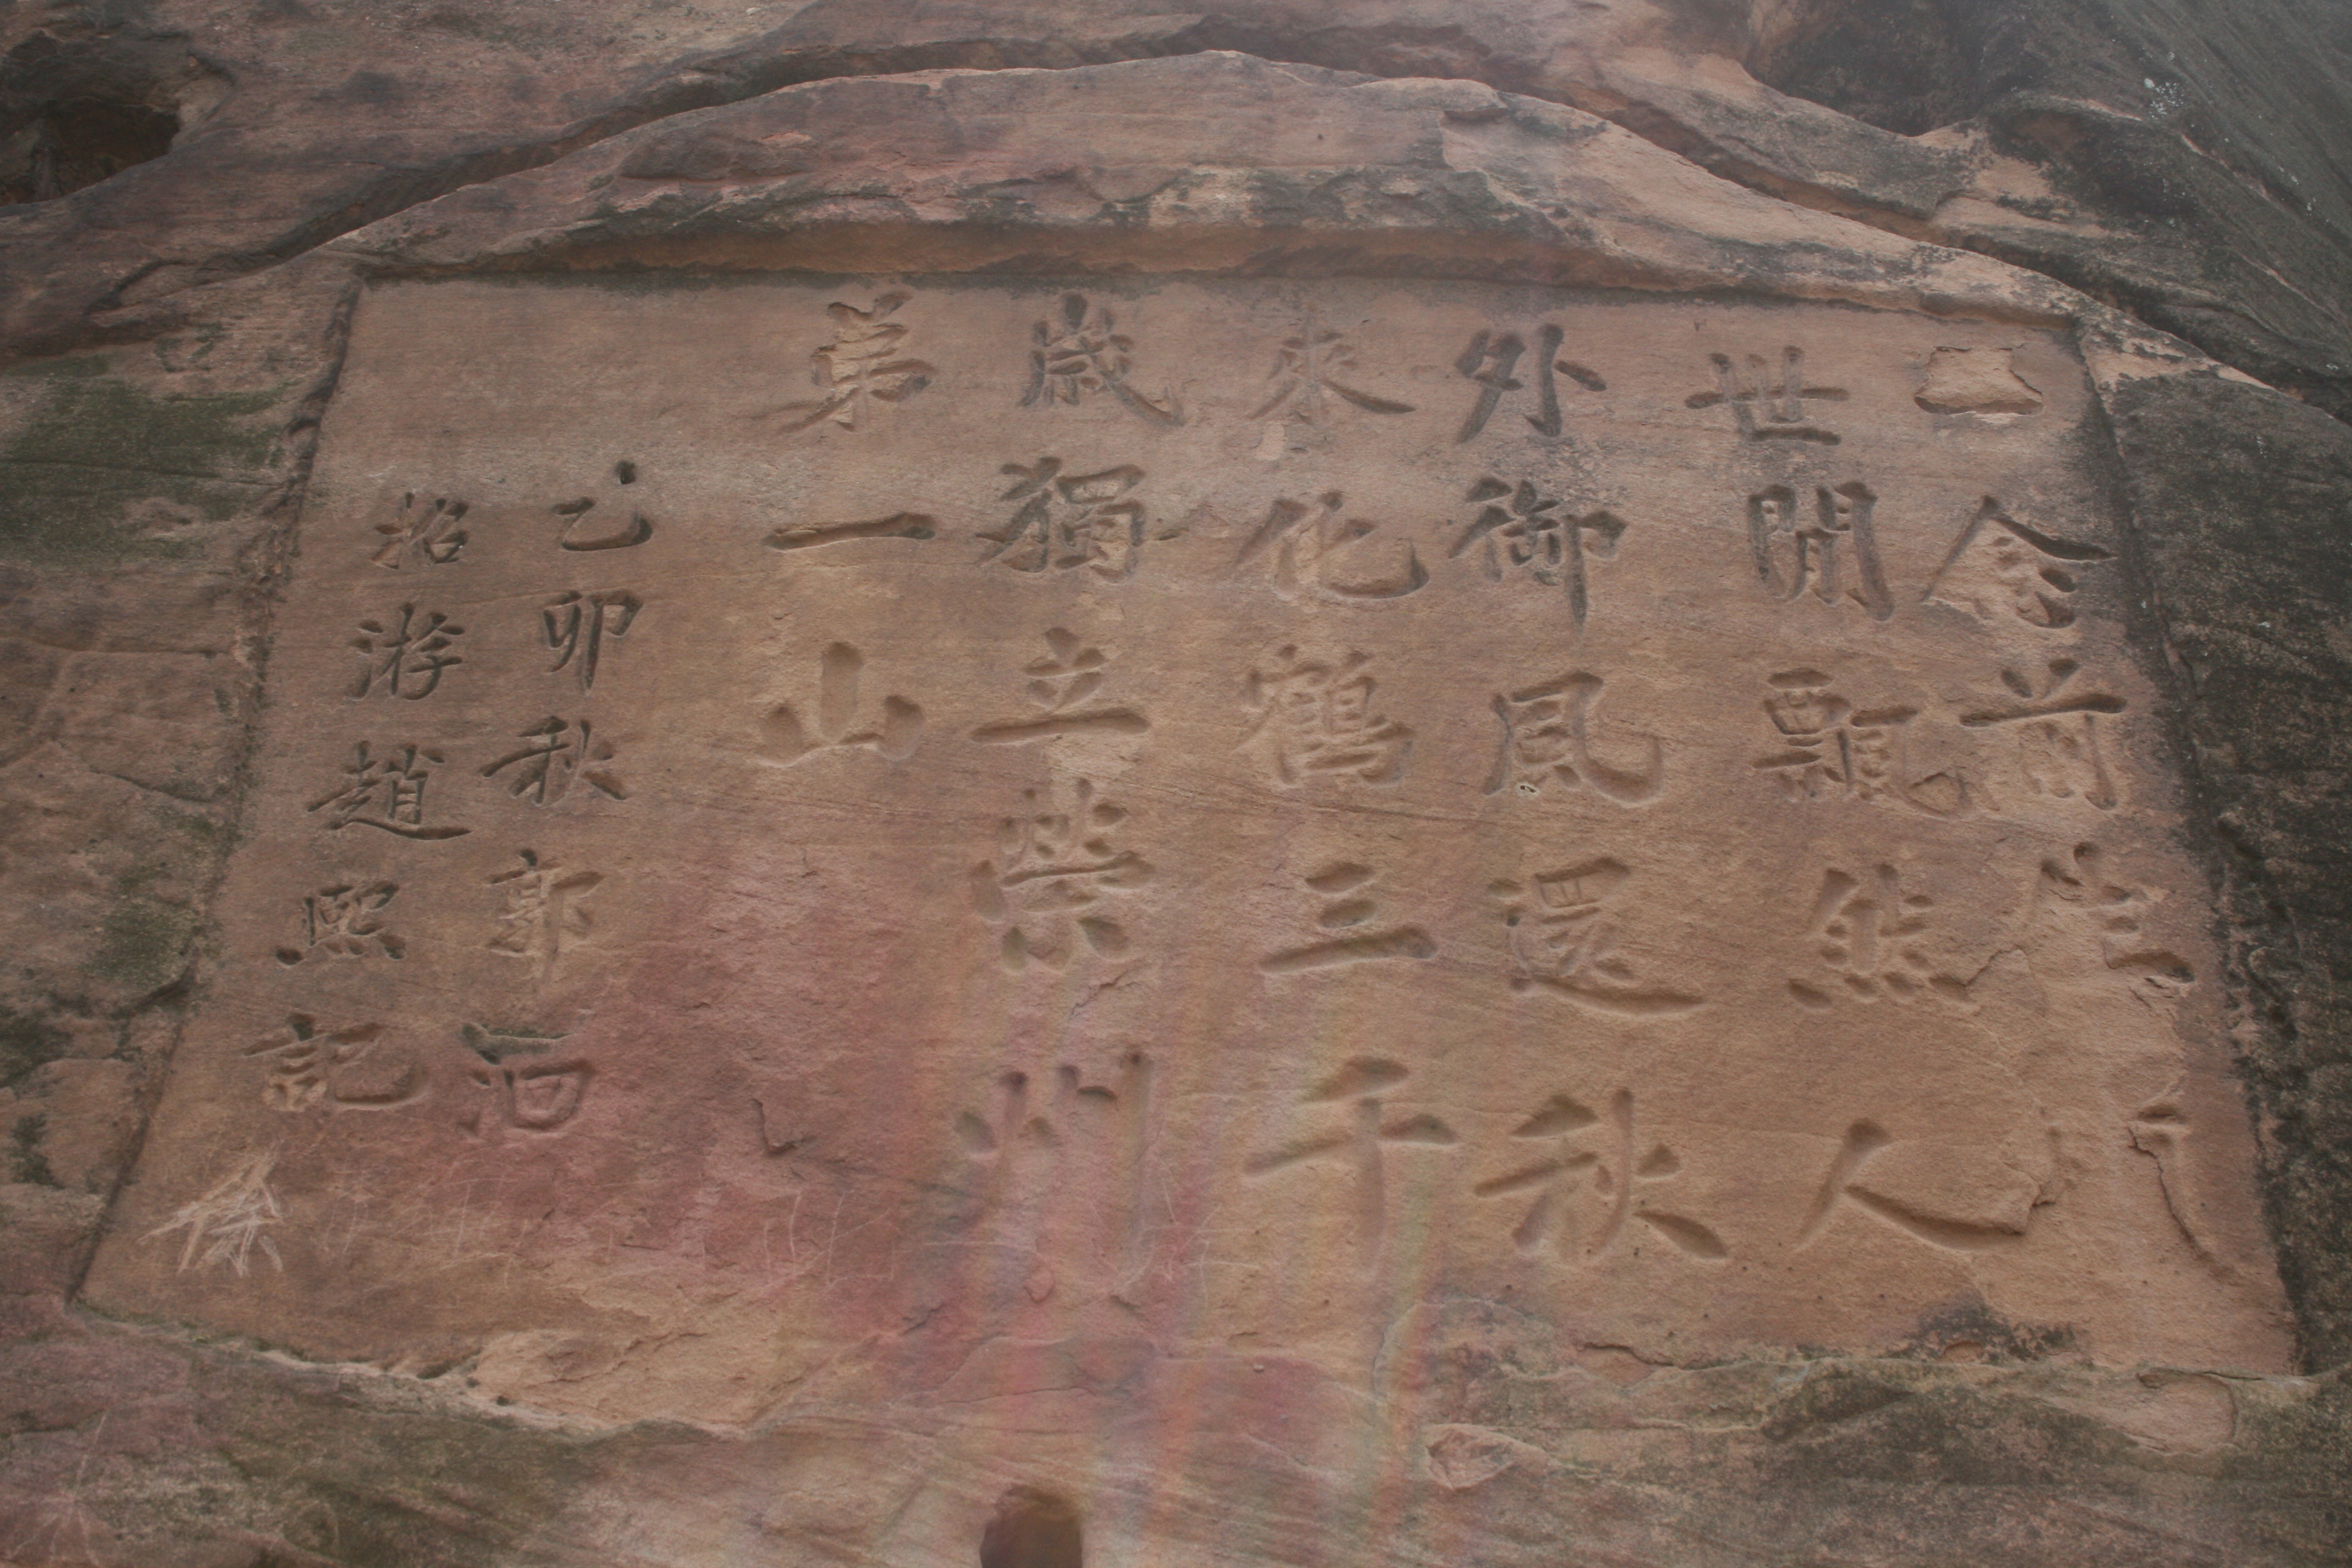 念前生
世閒飄然人
外御風還秋
來化鶴三千
歲獨立榮州
弟一山
乙卯秋郭洄
招游趙熙記